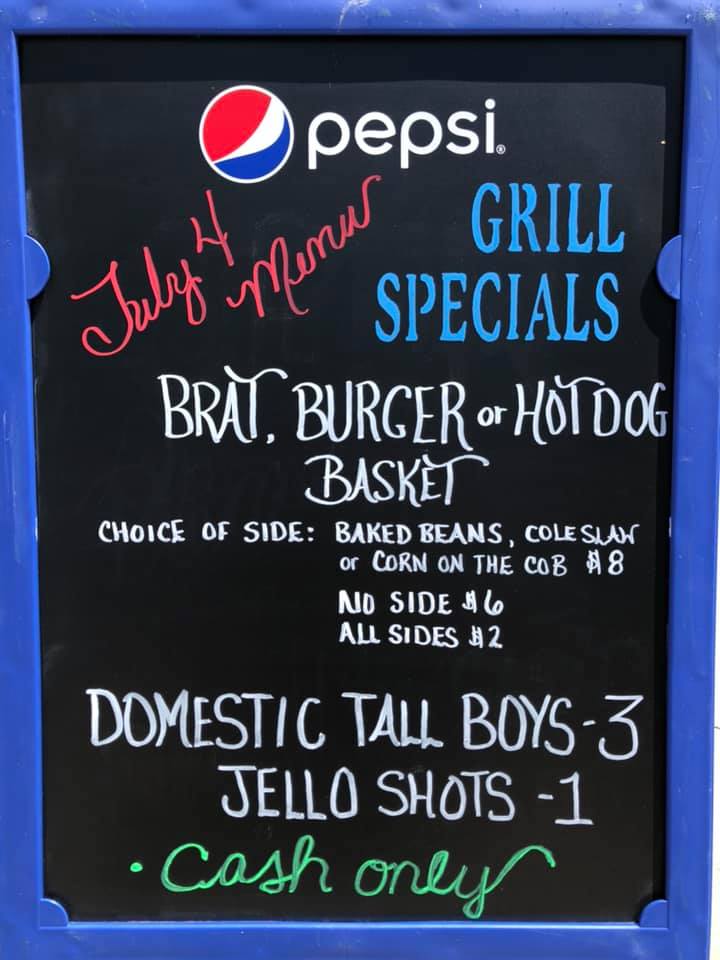 pepsi®
July 4 Menu
GRILL
SPECIALS
BRAT, BURGER or HOT DOG
BASKET
CHOICE OF SIDE: BAKED BEANS, COLE SLAW
or CORN ON THE COB $8
NO SIDE $6
ALL SIDES $2
DOMESTIC TALL BOYS-3
JELLO SHOTS -1
• Cash only